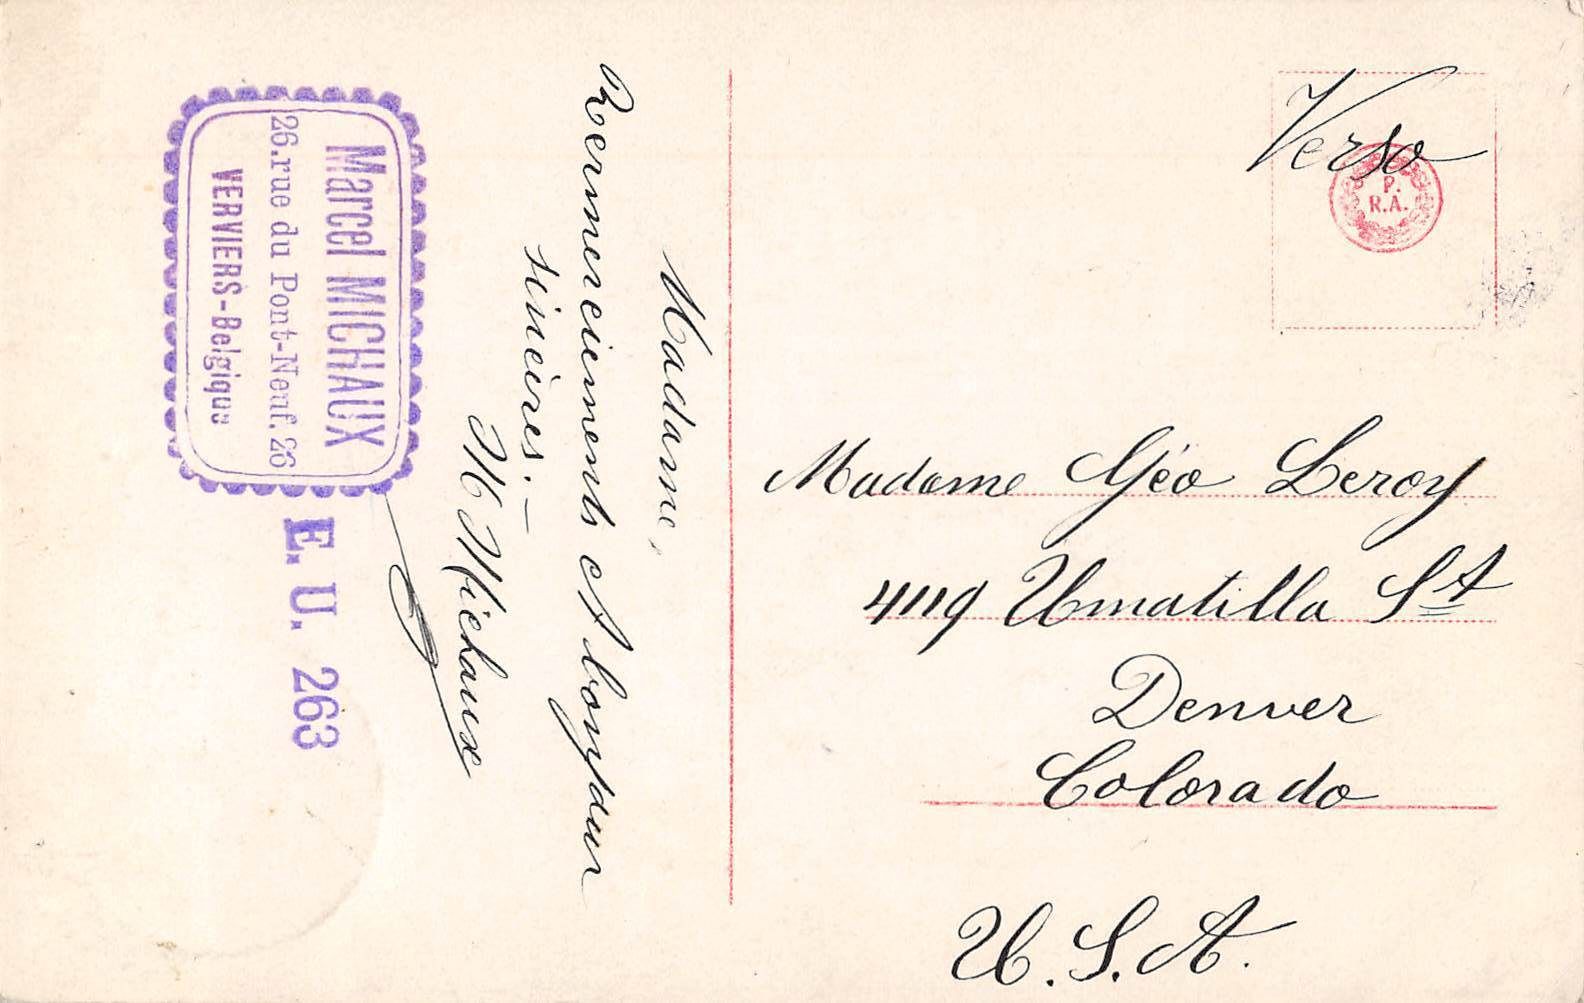 Marcel MICHAUX
26. rue du Pont-Neuf. 26
VERVIERS-Belgique
E. U. 263
Madame,
Remerciements et bonjour
sincères. —
M Michaux
Verso
P.
R.A.
Madame Géo Leroy
4119 Umatilla St
Denver
Colorado
U.S.A.